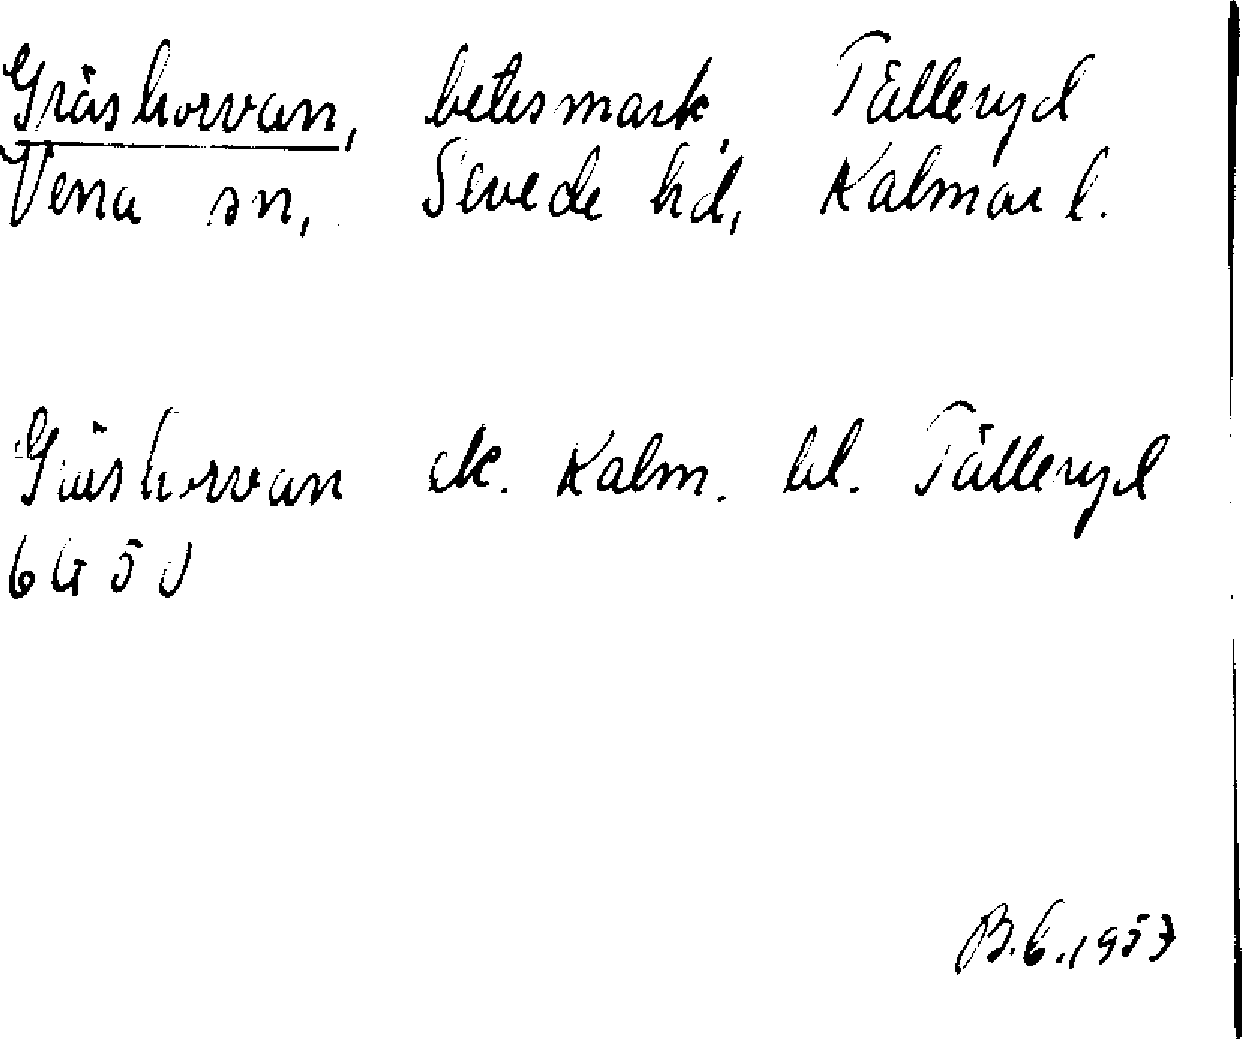 Gräshorvan, betesmark, Tålleryd
Vena sn, Sevede hd, Kalmar l.
Gräshorvan ek. Kalm. bl. Tålleryd
6G 5 J
B.G. 1957